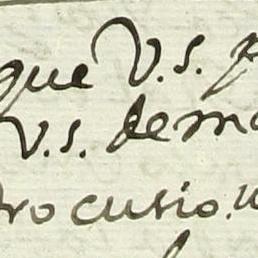 que V.S. p
V.S. dema
rocurio.